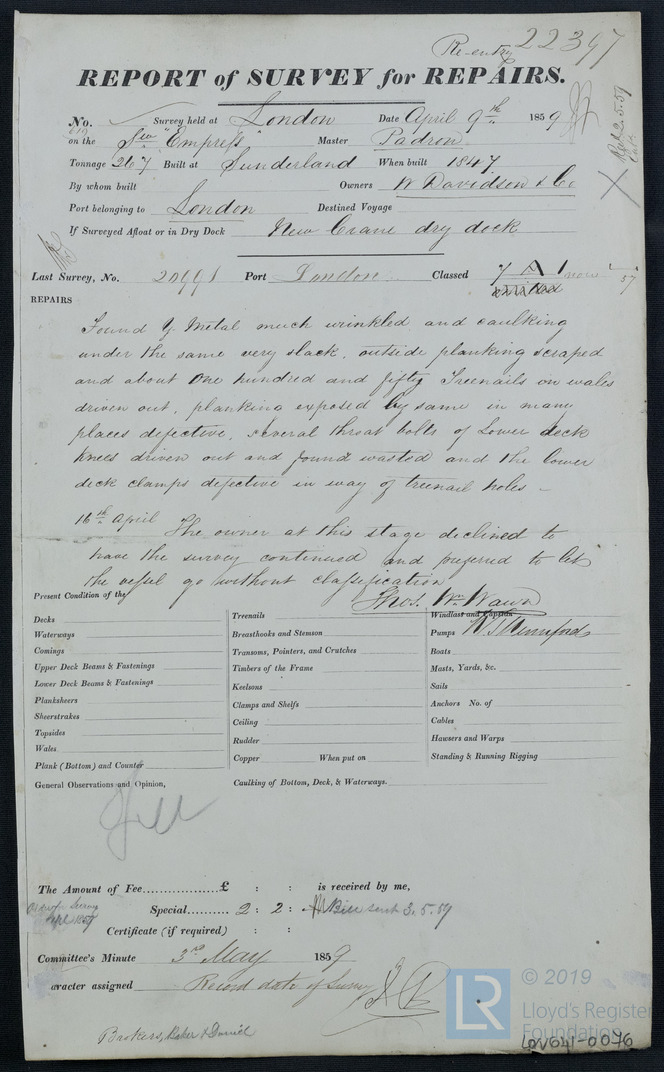 Re-entry 22397
REPORT of SURVEY for REPAIRS.
No. 619 Survey held at London Date April 9th 1859
on the Sw "Empress" Master Padron
Tonnage 267 Built at Sunderland When built 1847
By whom built Owners W Davidson & Co
Port belonging to London Destined Voyage
If Surveyed Afloat or in Dry Dock New Crane dry dock
Last Survey, No. 20991 Port London Classed 7 A 1 now 57
REPAIRS
Found Y Metal much wrinkled and caulking
under the same very slack, outside planking scraped
and about One hundred and fifty Treenails on wales
driven out, planking exposed by same in many
places defective, several throat bolts of Lower deck
knees driven out and found wasted and the lower
deck clamps defective in way of treenail holes –
16th April The owner at this stage declined to
have the survey continued and preferred to let
the vessel go without classification
Thos. Wm Wawn
Present Condition of the
Decks
Waterways
Comings
Upper Deck Beams & Fastenings
Lower Deck Beams & Fastenings
Planksheers
Sheerstrakes
Topsides
Wales
Plank (Bottom) and Counter
Treenails
Breasthooks and Stemson
Transoms, Pointers, and Crutches
Timbers of the Frame
Keelsons
Clamps and Shelfs
Ceiling
Rudder
Copper When put on
Windlass and Capstan
Pumps
Boats
Masts, Yards, &c.
Sails
Anchors No. of
Cables
Hawsers and Warps
Standing & Running Rigging
General Observations and Opinion,
Caulking of Bottom, Deck, & Waterways.
The Amount of Fee £ : : is received by me,
Special 2 : 2 : Bill sent 3.5.59
Certificate (if required) : :
Committee's Minute 3rd May 1859
aracter assigned Record date of Survey
Brokers, Baker & Daniel
LR
© 2019
Lloyd's Register
Foundation
LDV041-0076